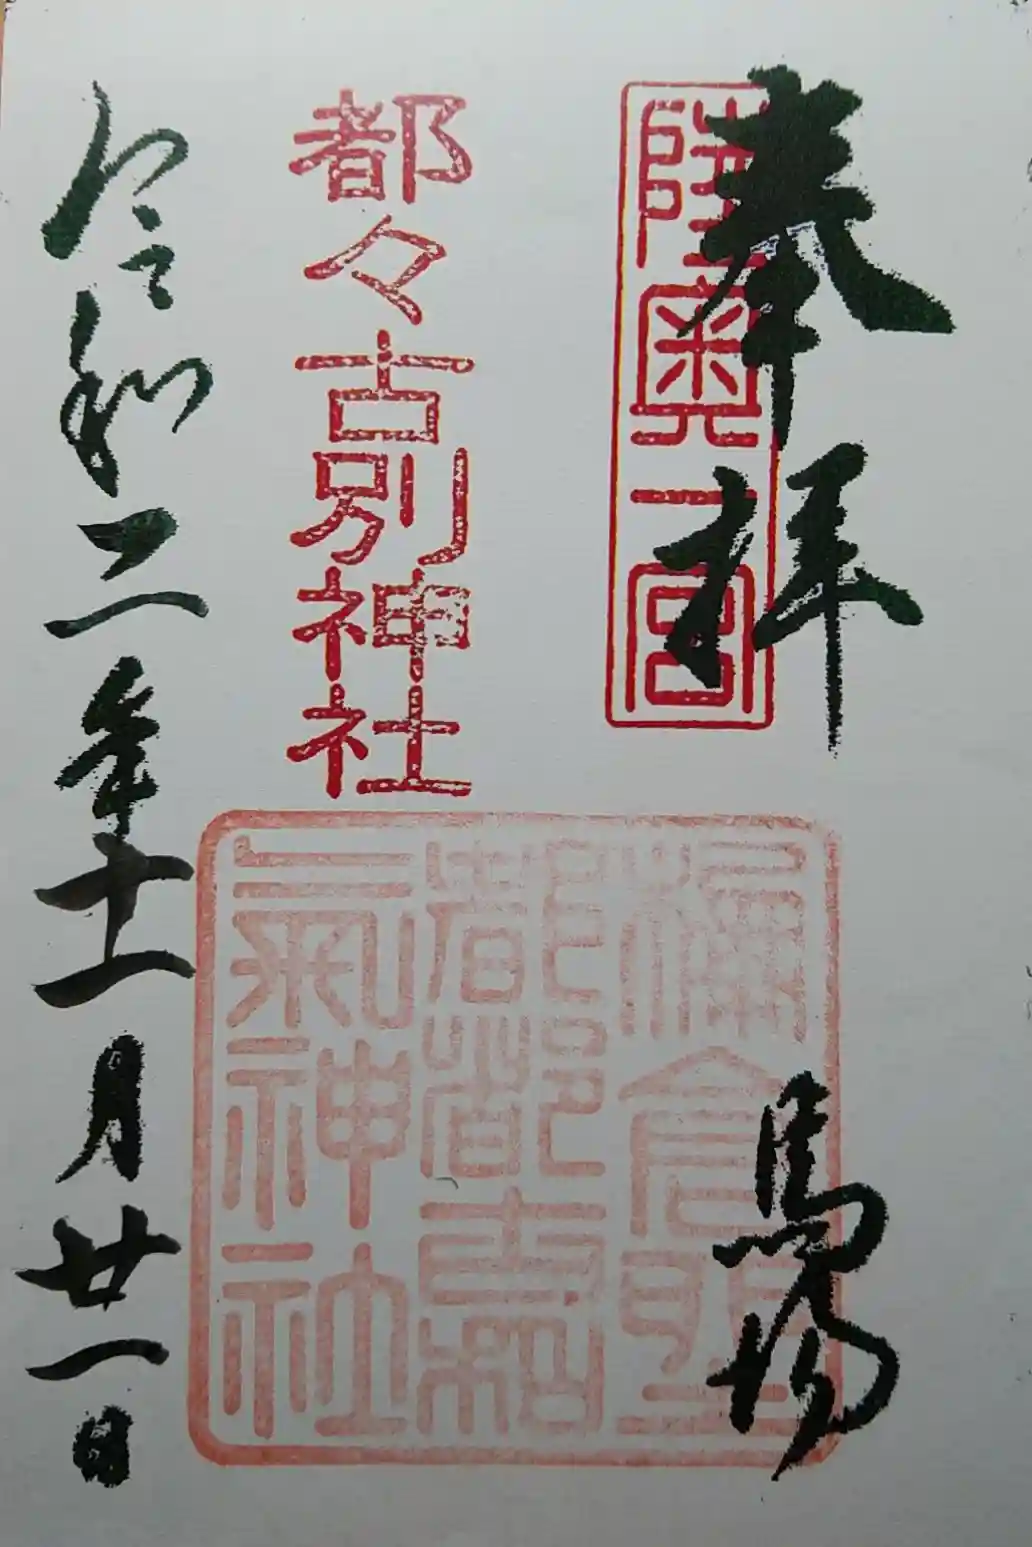 奉拝
陸奥一宮
馬場
都々古別神社
都都古
氣神社
令和二年十一月廿一日